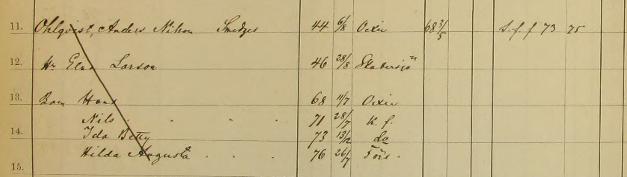 11. Ohlqvist, Anders Nilson Smidges 44 6/8 Oxie 68 3/5 S. f. f 73 75
12. Hu Elna Larson 46 28/8 Skabersjö
13. Barn Hans 68 11/7 Oxie
Nils " " 71 28/7 K f.
14. Ida Betty 73 13/12 do
Hilda Augusta . . . 76 26/7 Förs.
15.